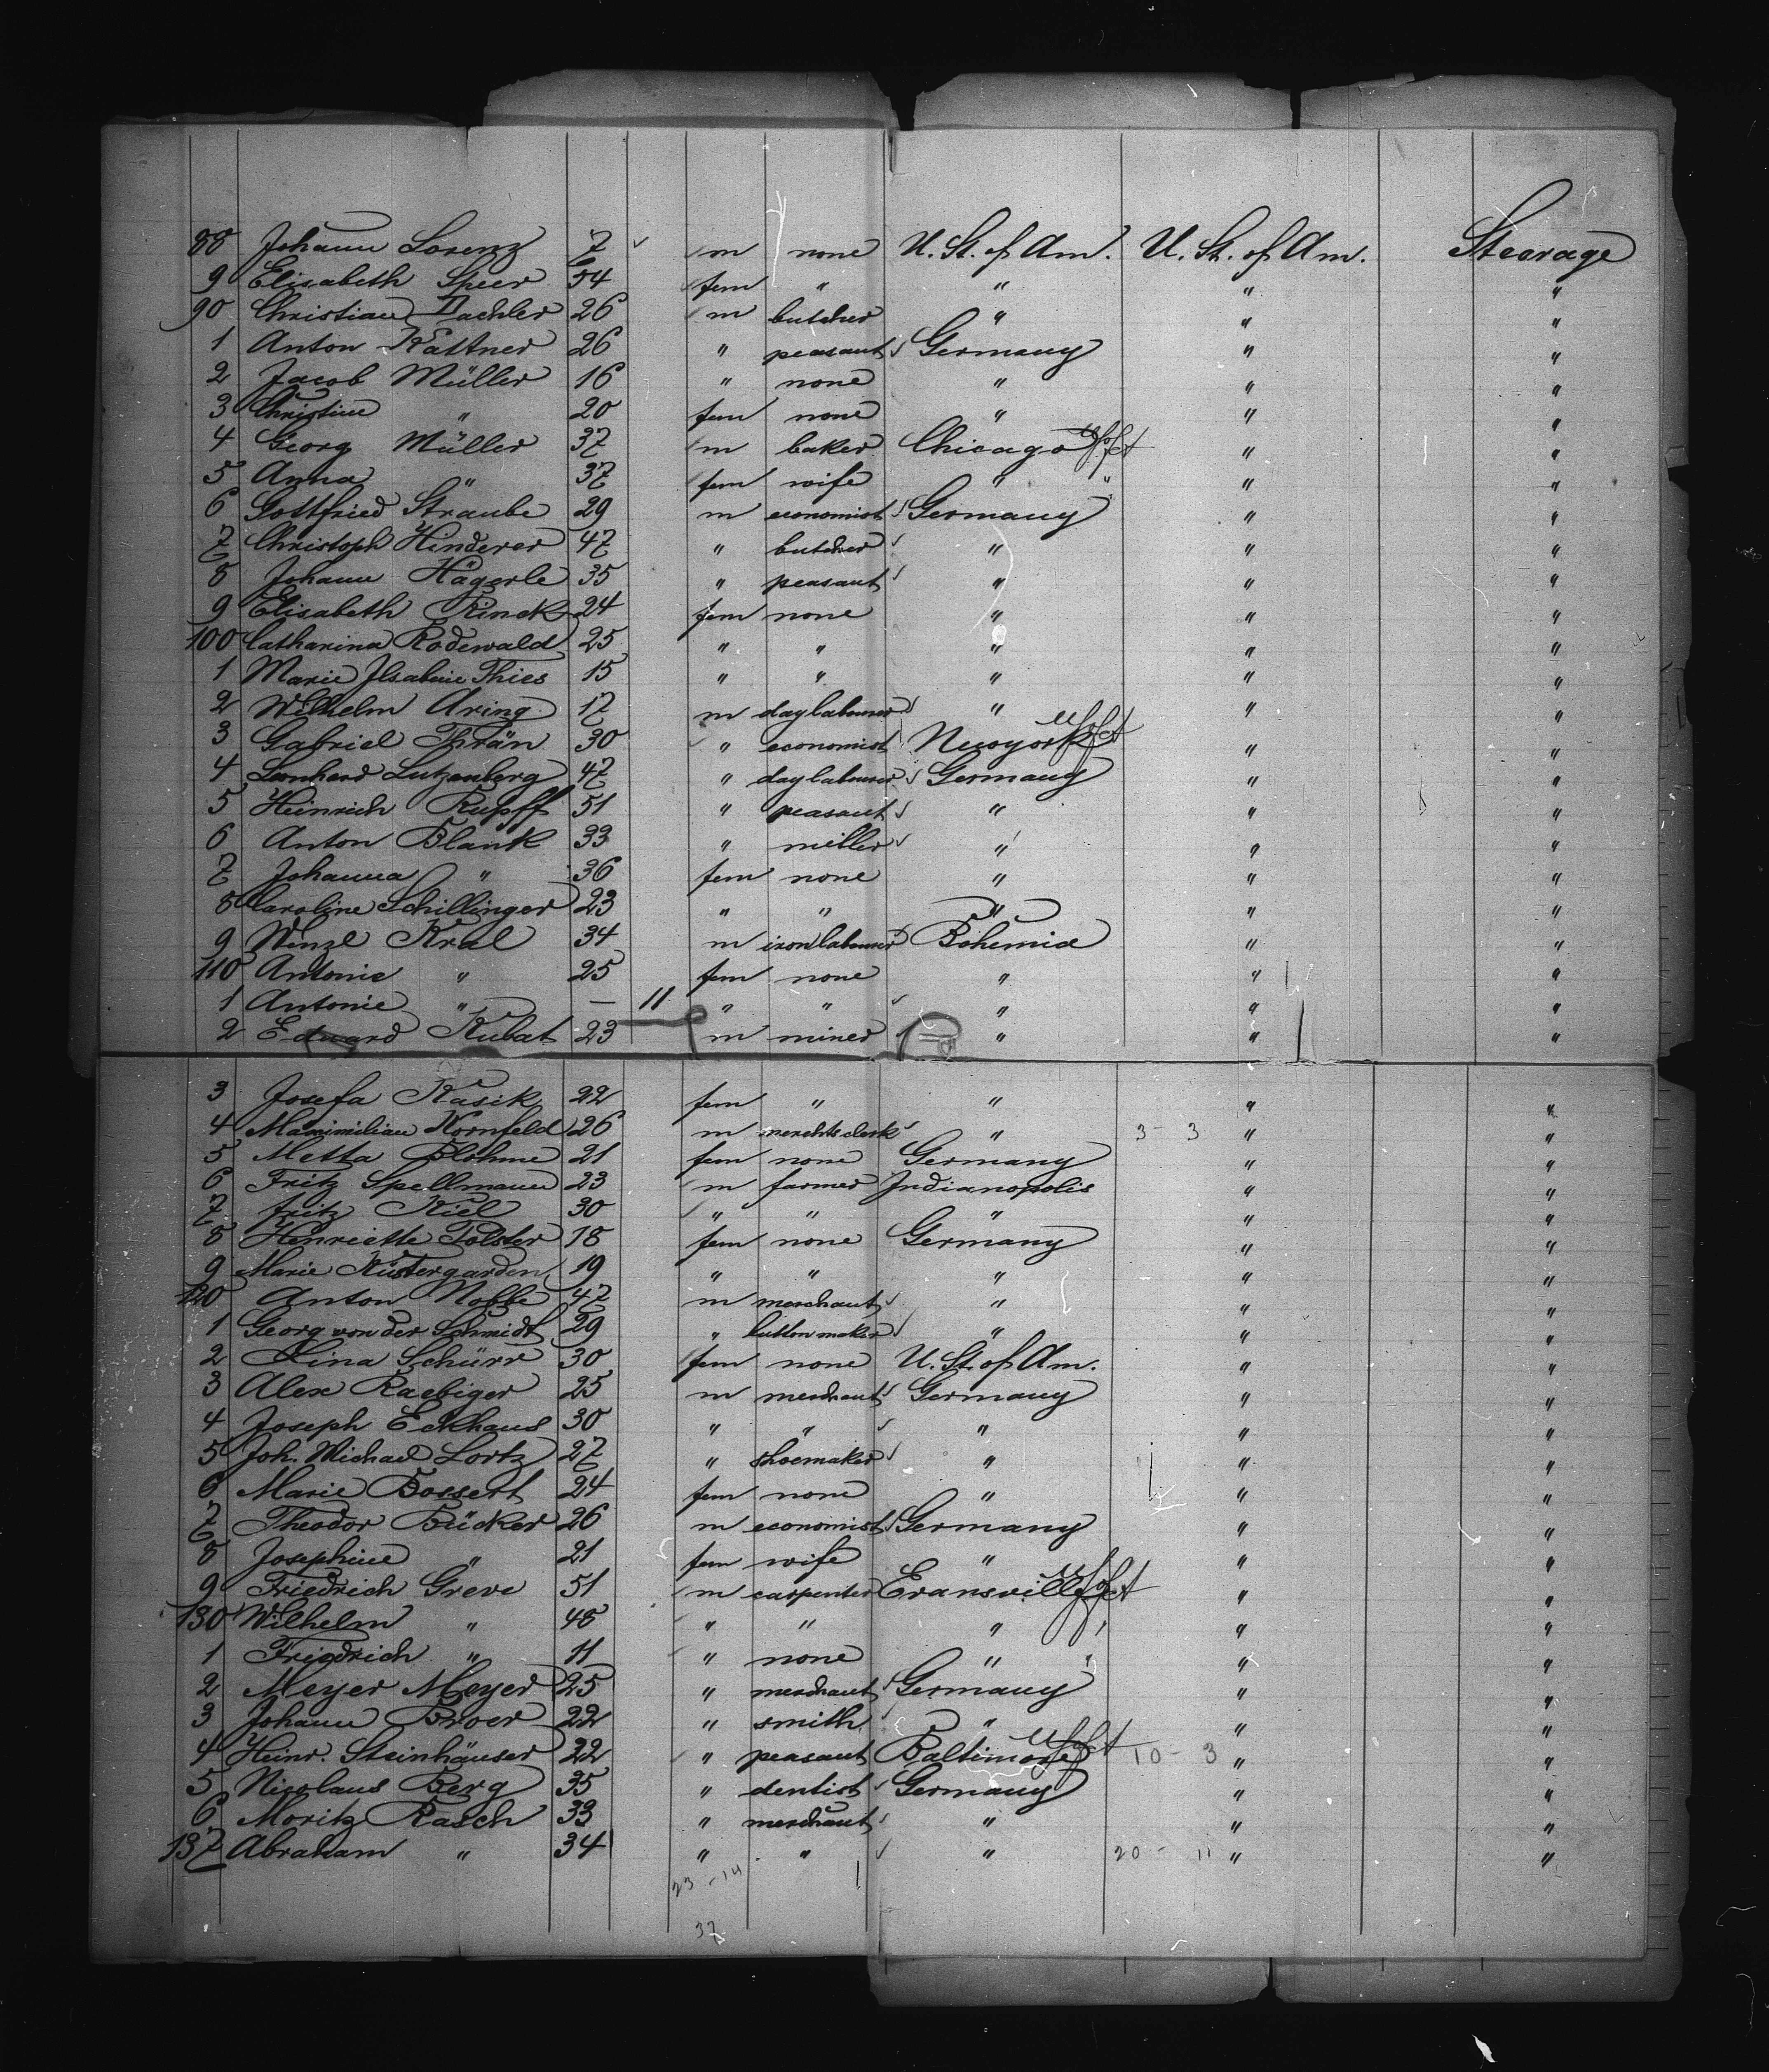 88 Johann Lorenz 7 m none U. St. of Am. U. St. of Am. Stearage
9 Elisabeth Speer 54 fem " " " "
90 Christian Dachler 26 m butcher " " "
1 Anton Kattner 26 " peasant Germany " "
2 Jacob Müller 16 " none " " "
3 Christine " 20 fem none " " "
4 Georg Müller 37 m baker Chicago " "
5 Anna " 37 fem wife " " " "
6 Gottfried Straube 29 m economist Germany " "
7 Christoph Hinderer 47 " butcher " " "
8 Johann Hägerle 35 " peasant " " "
9 Elisabeth Rinck 24 fem none " " "
100 Catharina Rodewald 25 " " " " "
1 Marie Ilsabein Thies 15 " " " " "
2 Wilhelm Aring 17 m daylabourer " " "
3 Gabriel Thrän 30 " economist Newyork " "
4 Leonhard Lutzenberg 47 " daylabourer Germany " "
5 Heinrich Rupff 51 " peasant " " "
6 Anton Blank 33 " miller " " "
7 Johanna " 36 fem none " " "
8 Caroline Schillinger 23 " " " " "
9 Wenzl Kral 34 m ironlabourer Bohemia " "
110 Antonie " 25 fem none " " "
1 Antonie " — 11 " " " " "
2 Eduard Kubat 23 m miner " " "
3 Josefa Kasik 22 fem " " " "
4 Maximilian Kornfeld 26 m merchts clerk " 3 - 3 " "
5 Metta Blohme 21 fem none Germany " "
6 Fritz Spellmann 23 m farmer Indianopolis " "
7 Fritz Kiel 30 " " " " "
8 Henriette Polster 18 fem none Germany " "
9 Marie Küstergarden 19 " " " " "
120 Anton Nobbe 47 m merchant " " "
1 Georg von der Schmidt 29 " button maker " " "
2 Lina Schürr 30 fem none U. St. of Am. " "
3 Alex Raebiger 25 m merchant Germany " "
4 Joseph Eckhaus 30 " " " " "
5 Joh. Michael Lortz 27 " shoemaker " " "
6 Marie Bossert 24 fem none " " "
7 Theodor Bücker 26 m economist Germany " "
8 Josephine " 21 fem wife " " "
9 Friedrich Greve 51 m carpenter Evansville " "
130 Wilhelm " 48 " " " " " "
1 Friedrich " 11 " none " " " "
2 Meyer Meyer 25 " merchant Germany " "
3 Johann Broer 22 " smith " " "
4 Heinr. Steinhäuser 22 " peasant Baltimore 10 - 3 " "
5 Nicolaus Berg 35 " dentist Germany " "
6 Moritz Rasch 33 " merchant " " "
137 Abraham " 34 " " " 20 - 11 " "
23 - 14
37